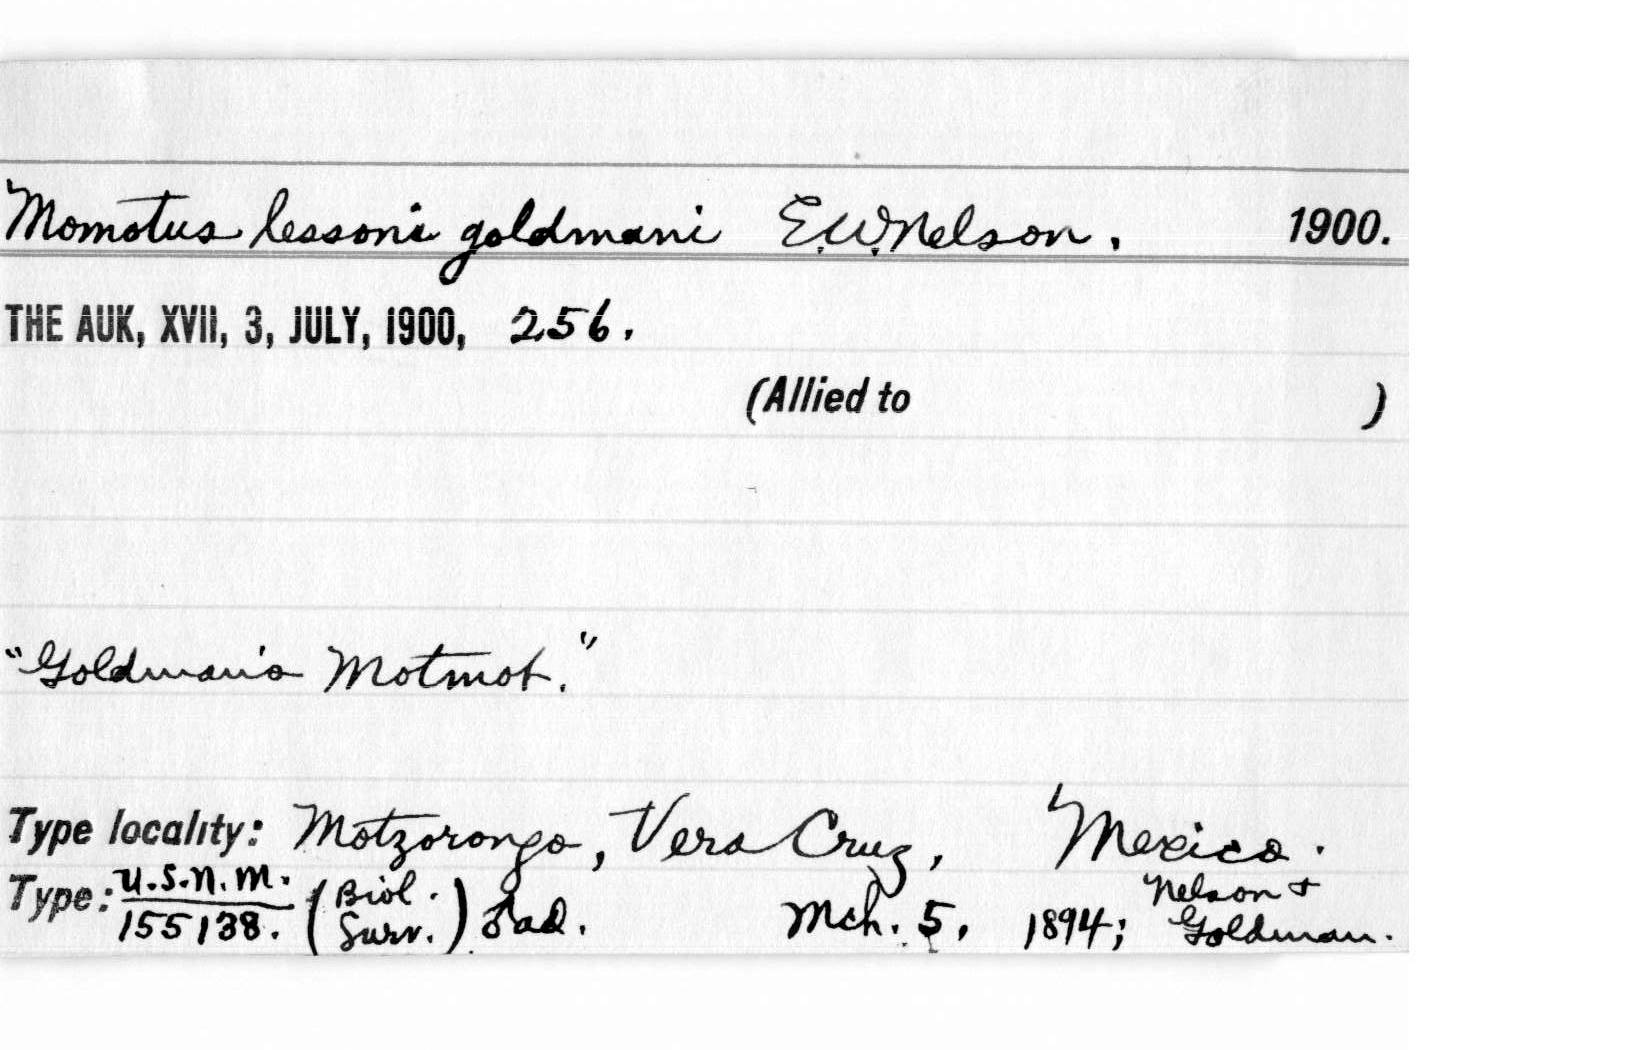 Momotus lessoni goldmani E.W.Nelson. 1900.
THE AUK, XVII, 3, JULY, 1900, 256.
(Allied to )
"Goldman's Motmot."
Type locality: Motzorongo, Vera Cruz, Mexico.
Type: U.S.N.M. 155138. (Biol. Surv.) ♂ ad. Mch. 5, 1894; Nelson & Goldman.